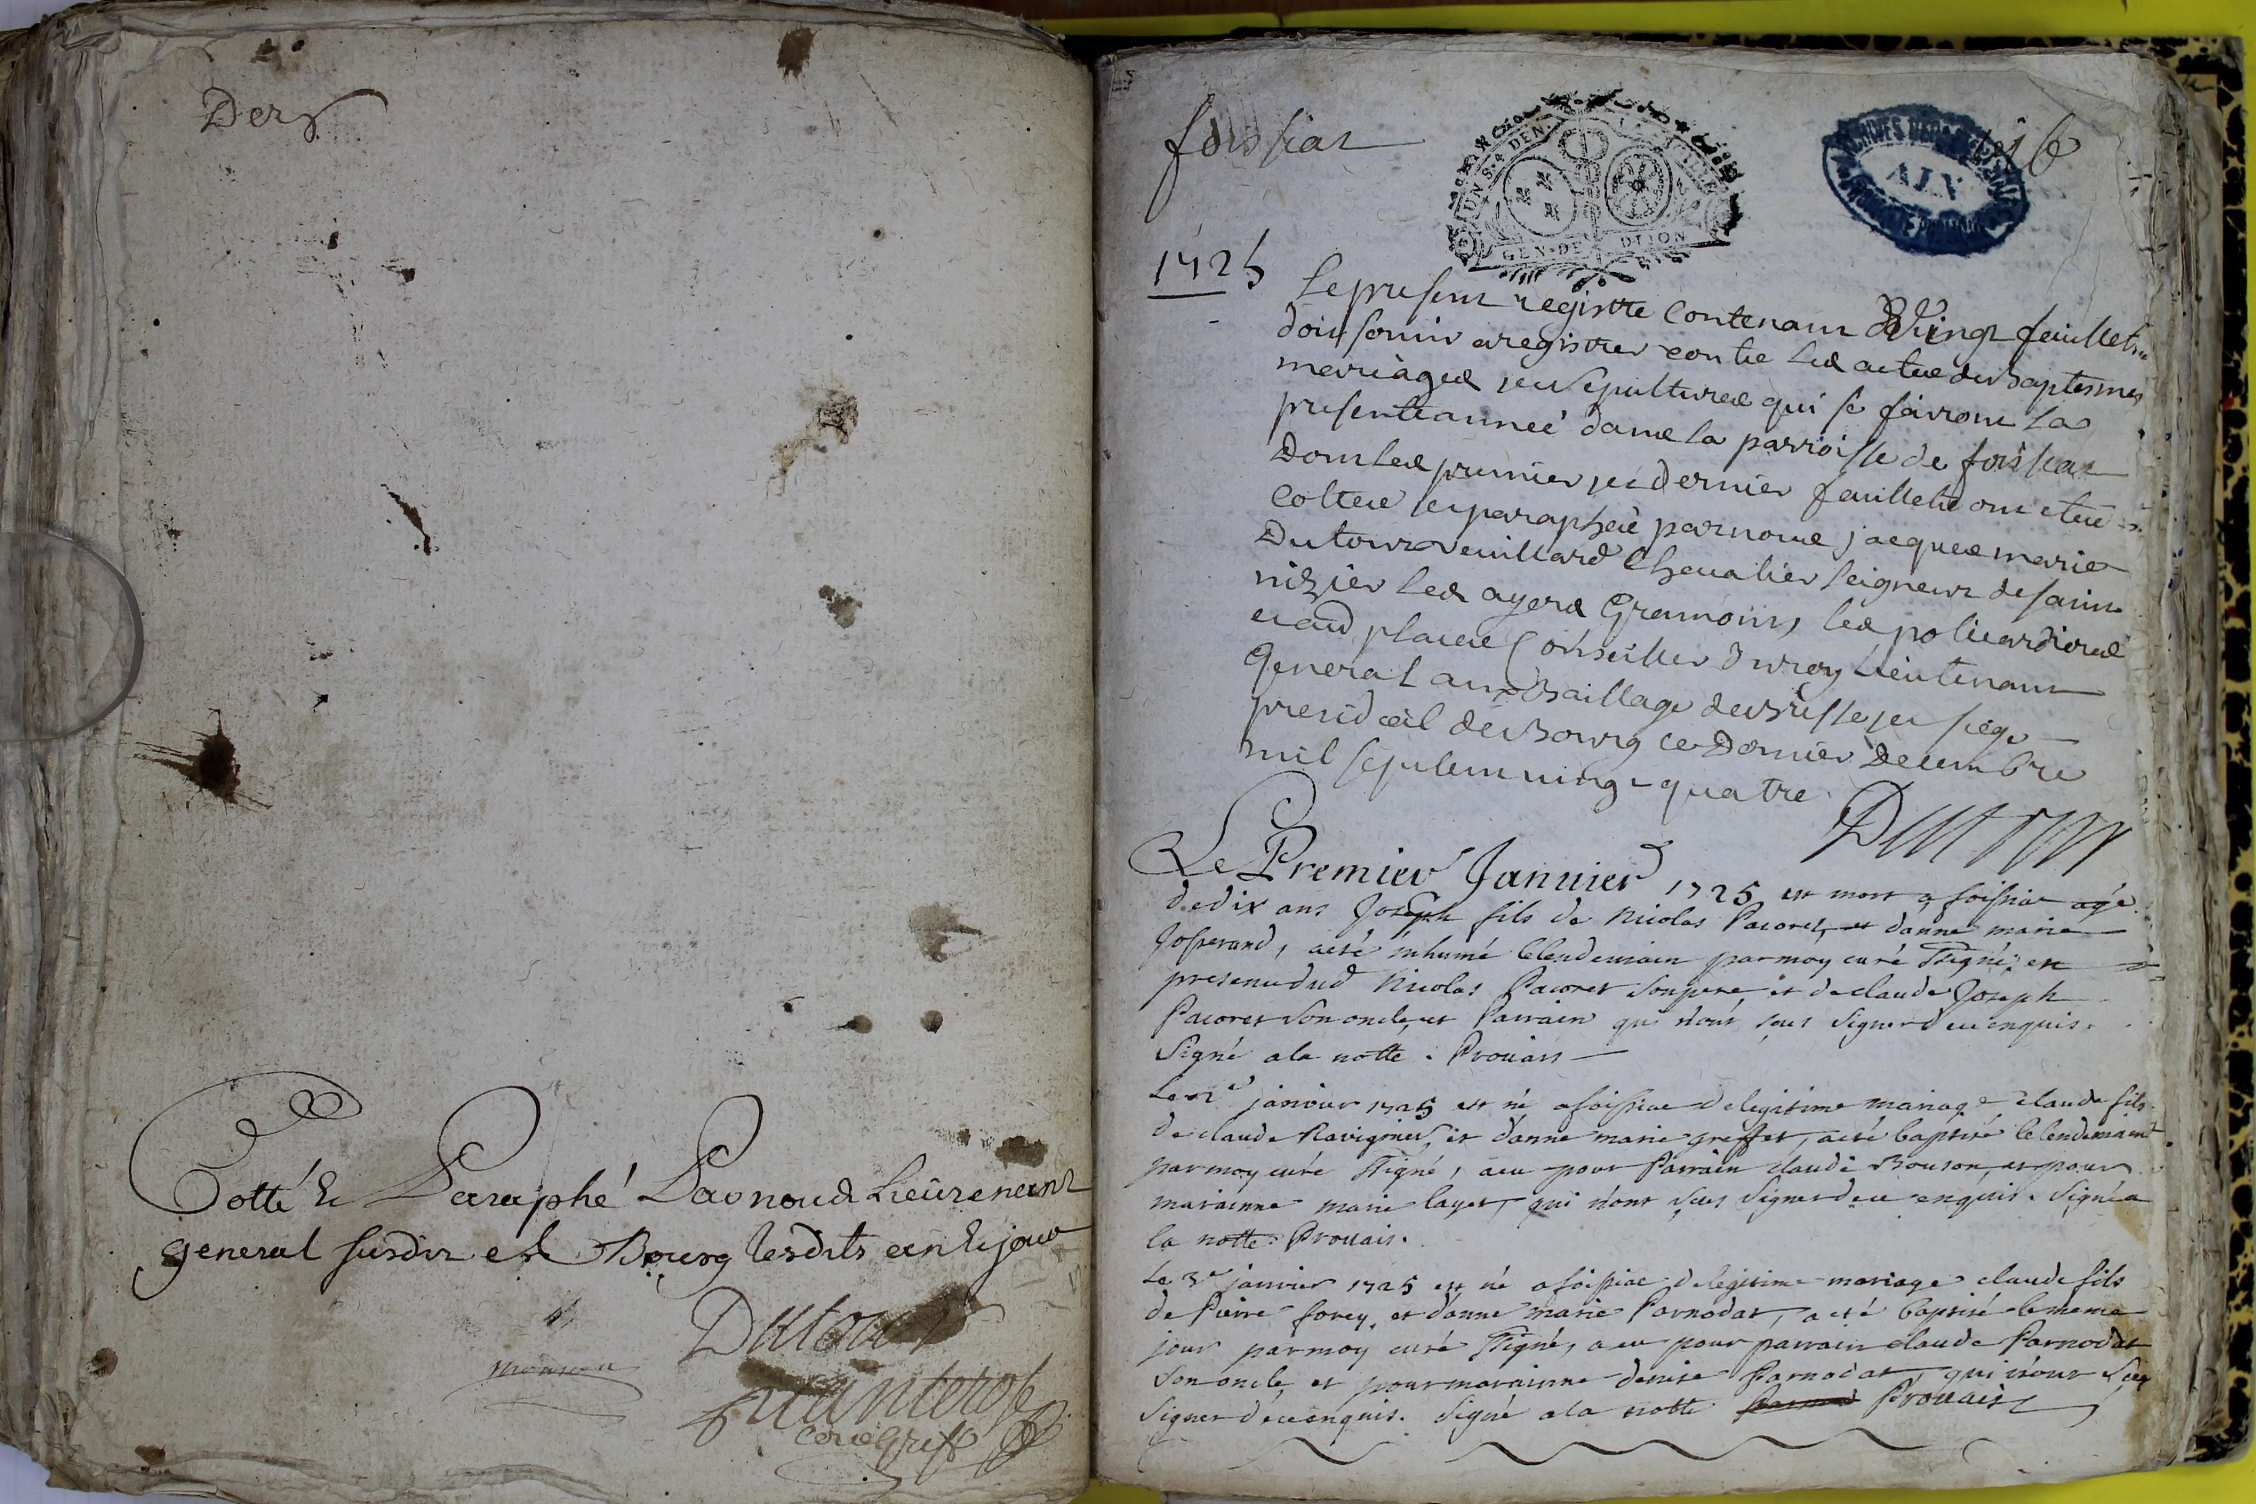 Der
Cotté & Paraphé Par nous Lieutenant
general susdit es Bourg lesdits an & jour
Dutour
foissiat
GEN. DE DIJON
AIN
1725
Le present registre contenant Vingt feuillets
doit servir a registrer contre les actes de baptesmes
mariages et sepultures qui se fairont la
presente année dans la parroisse de foissiat
Dont les premier et dernier feuillets ont eté
cottés et paraphés par nous jacques marie
Dutour Veuillard Chevalier seigneur de saint
nizier les
et autd places Conseiller du roy Lieutenant
General au Baillage de Bresse et siege
presidial de Bourg ce Dernier Decembre
mil sept cent vingt quatre
Dutour
Le Premier Januier 1725 est mort a foissiat agé
de dix ans Joseph fils de Nicolas Pacoret, et d'anne marie
Josserand, a eté inhumé le lendemain par moy curé ssigné, en
presence dud Nicolas Pacoret son pere et de claude Joseph
Pacoret son oncle, et Parrain qui n'ont sceu signer de ce enquis.
Signé a la notte. Prouais
Le 2e janvier 1725 est né a foissiat de legitime mariage claude fils
de claude Ravignier, et d'anne marie greffet, a eté baptisé le lendemain
par moy curé ssigné, a eu pour Parrain claude Bouson et pour
marainne marie layet, qui n'ont sceu signer de ce enquis. Signé a
la notte: Prouais.
Le 3e janvier 1725 est né a foissiat de legitime mariage claude fils
de Pierre forey, et d'anne marie Parnodat, a eté baptisé le meme
jour par moy curé ssigné, a eu pour parrain claude Parnodat
son oncle, et pour marainne denise Parnodat, qui n'ont sceu
signer de ce enquis. Signé a la notte Prouais